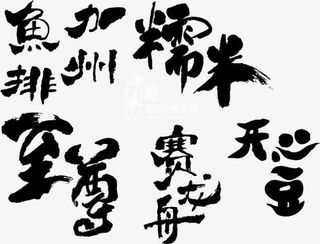 加州
魚排
糯米
至尊
賽龙舟
天心豆